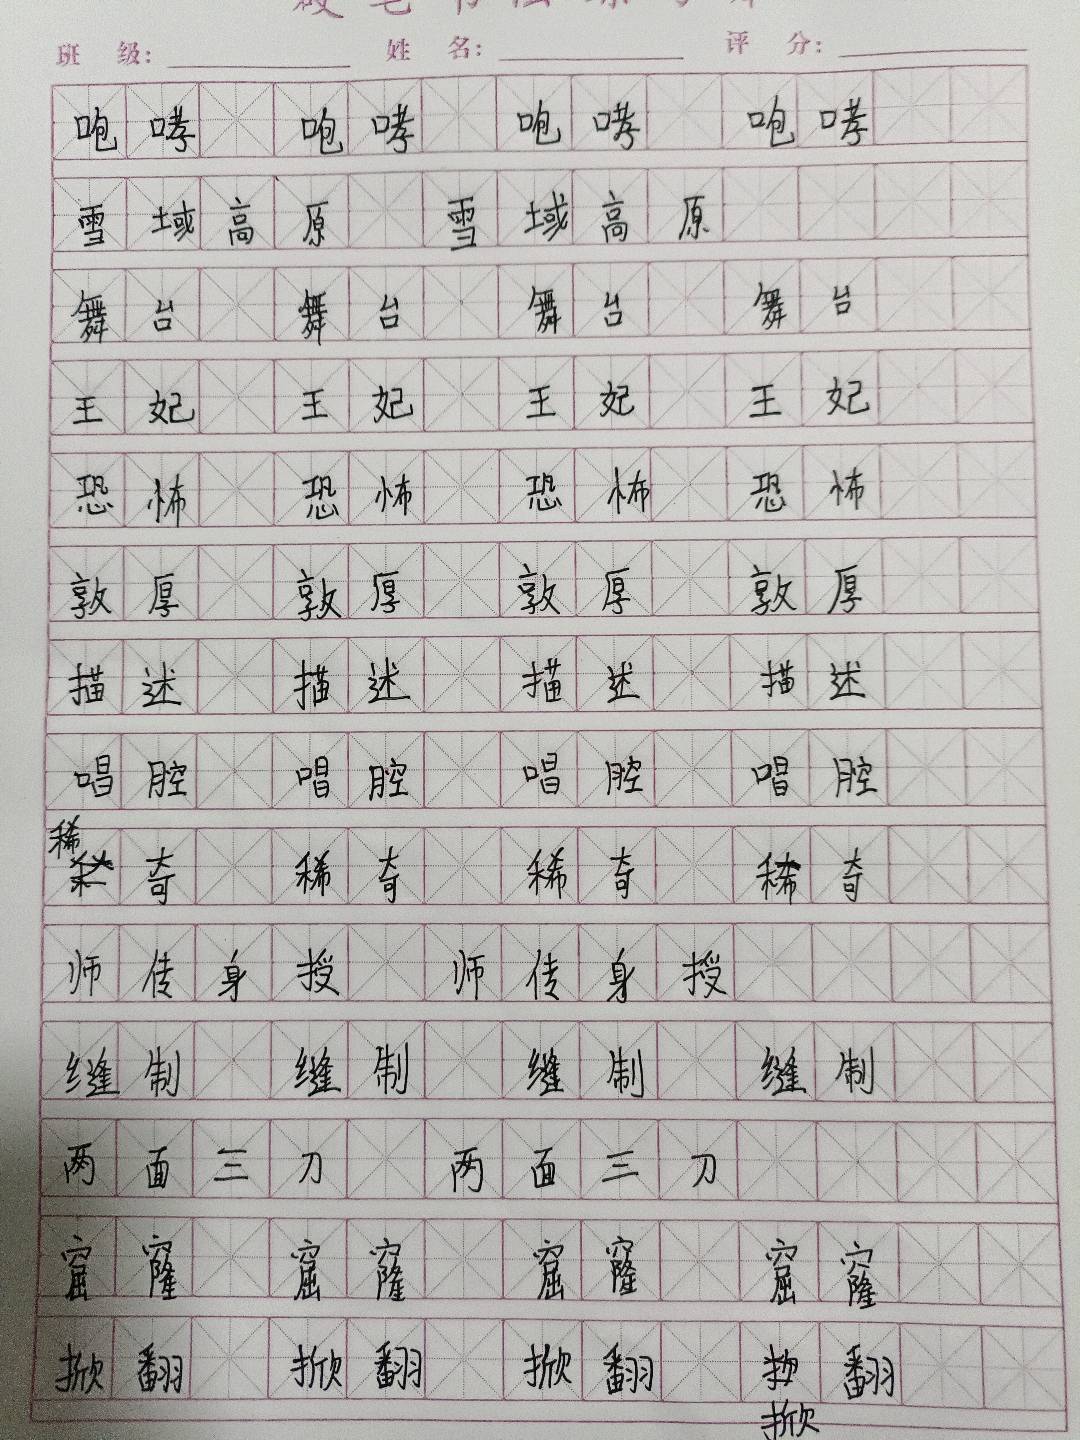 班 级: 姓 名: 评 分:
咆哮 咆哮 咆哮 咆哮
雪域高原 雪域高原
舞台 舞台 舞台 舞台
王妃 王妃 王妃 王妃
恐怖 恐怖 恐怖 恐怖
敦厚 敦厚 敦厚 敦厚
描述 描述 描述 描述
唱腔 唱腔 唱腔 唱腔
稀奇 稀奇 稀奇 稀奇
师传身授 师传身授
缝制 缝制 缝制 缝制
两面三刀 两面三刀
窟窿 窟窿 窟窿 窟窿
掀翻 掀翻 掀翻 翻
掀